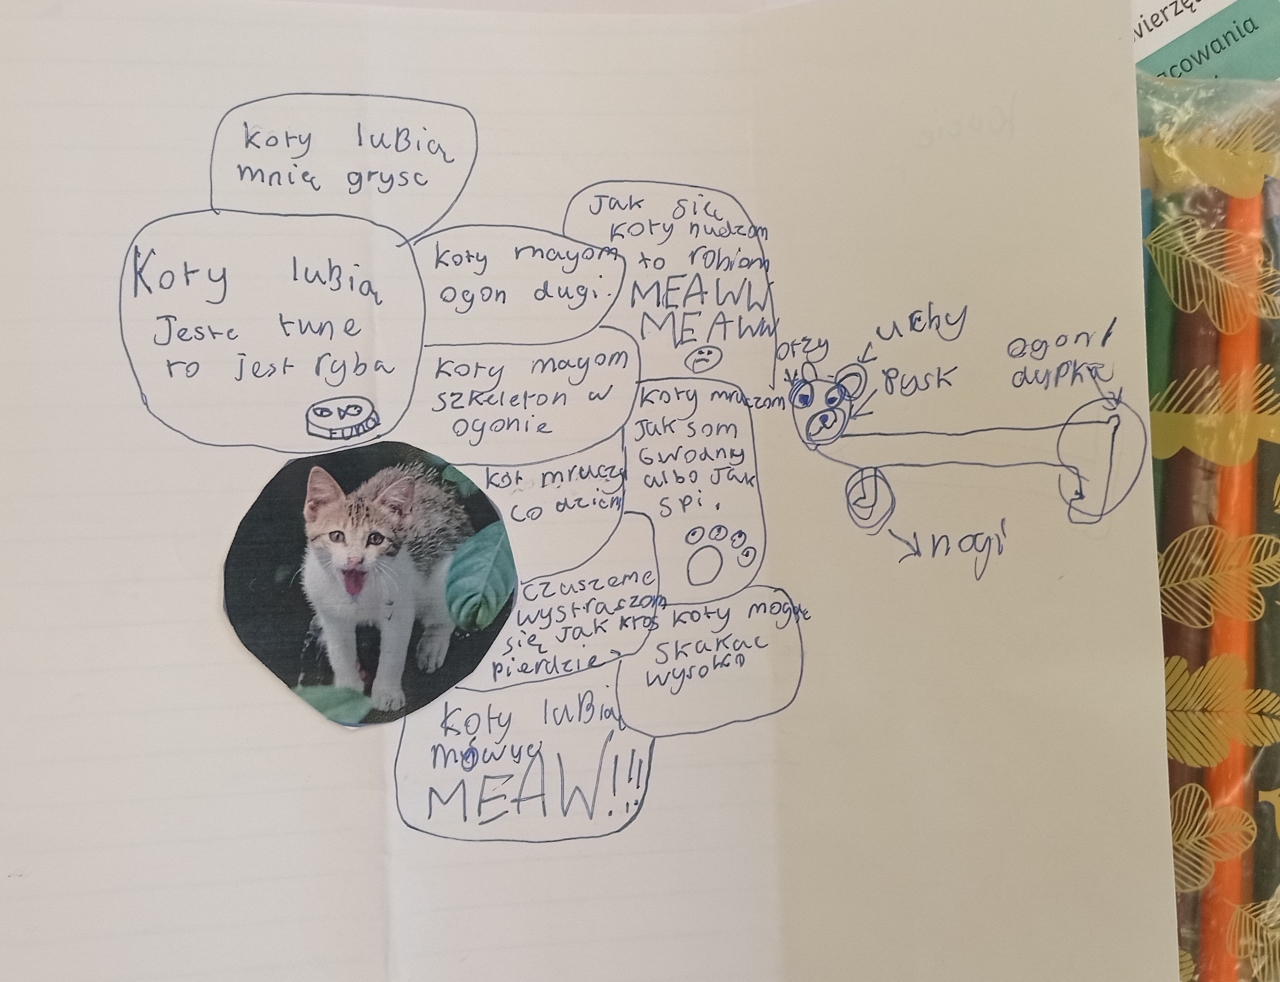 Koty luBią
mnię grysc
Koty luBią
Jesrc tune
to jest ryba
TUNA
koty mayom
ogon dugi.
Jak się
koty nudzom
to robiom
MEAWW
MEAWW
koty mayom
szkeleton w
ogonie
koty mruczom
jak som
Gwodny
albo jak
spi.
kot mruczy
co dzień
czuszeme
wystraszom
się jak ktos
pierdzie
koty mogąc
skakac
wysoko
Koty luBią
mówyć
MEAW!!!
orzy
uchy
Pysk
ogon/
dypka
nogi
wierzę
acowania